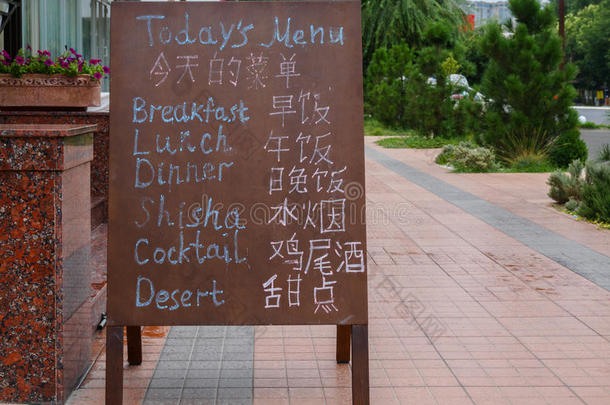 Today's Menu
今天的菜单
Breakfast 早饭
Lunch 午饭
Dinner 日晚饭
Shisha 水烟
Cocktail 鸡尾酒
Desert 甜点